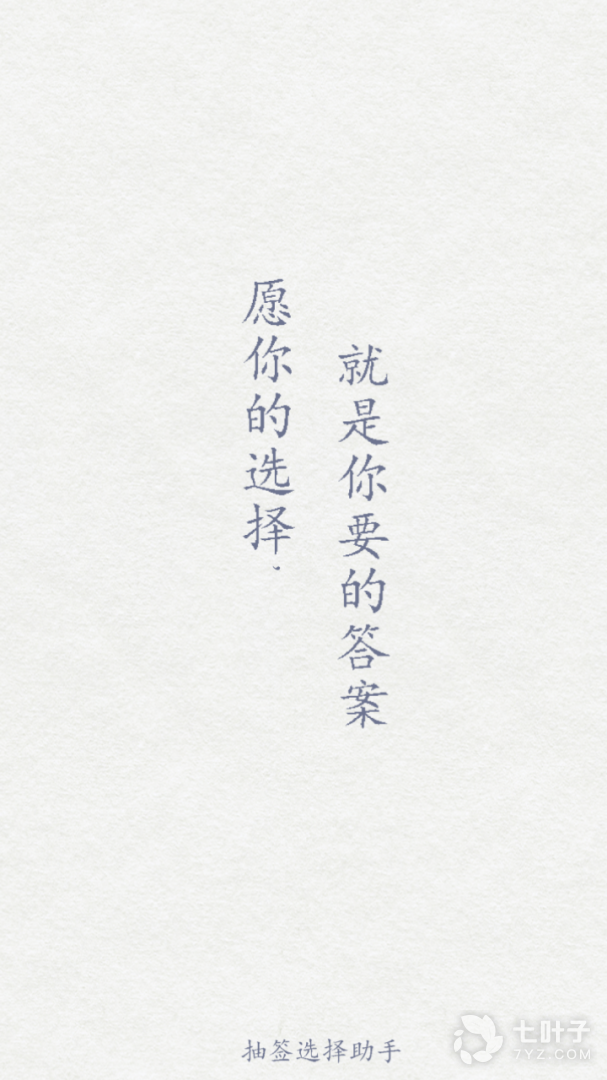 愿你的选择.
就是你要的答案
抽签选择助手
七叶子
7YZ.COM